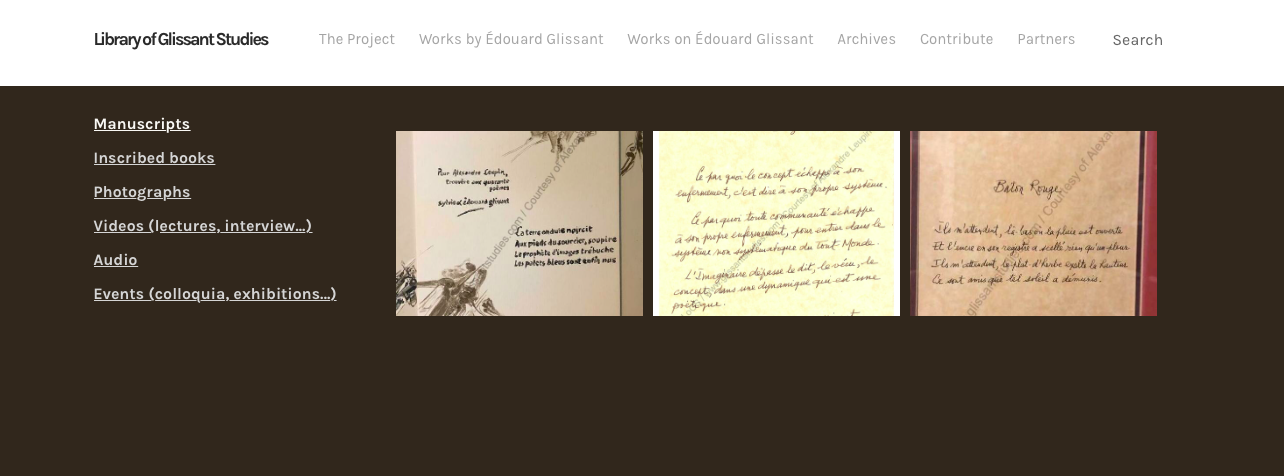 Library of Glissant Studies
The Project
Works by Édouard Glissant
Works on Édouard Glissant
Archives
Contribute
Partners
Search
Manuscripts
Inscribed books
Photographs
Videos (lectures, interview...)
Audio
Events (colloquia, exhibitions...)
Pour Alexandre Leupin,
poèmes
sylvie & édouard glissant
La terre ondule noircit
Aux pieds du sourcier, soupire
Le prophète d'images trébuche
Les palets bleus sont enfin nus
studies.com / Courtesy of Alexa
Ce par quoi le concept échappe à son
enfermement, c'est dire à son propre système.
Ce par quoi toute communauté échappe
à son propre enfermement, pour entrer dans le
système non systématique du Tout-Monde.
L'Imaginaire dépasse le dit, le vécu, le
concept, dans une dynamique qui est une
poétique.
Courtesy of Alexandre Leupin
Baton Rouge
Ils m'attendent, là-bas où la pluie est ouverte
Et l'encre en son registre a scellé rien qu'un pleur
Ils m'attendent, le plat d'herbe exalte la hauteur
Ce sont amis que tel soleil a démunis.
glissan
/ Courtesy of Alexa